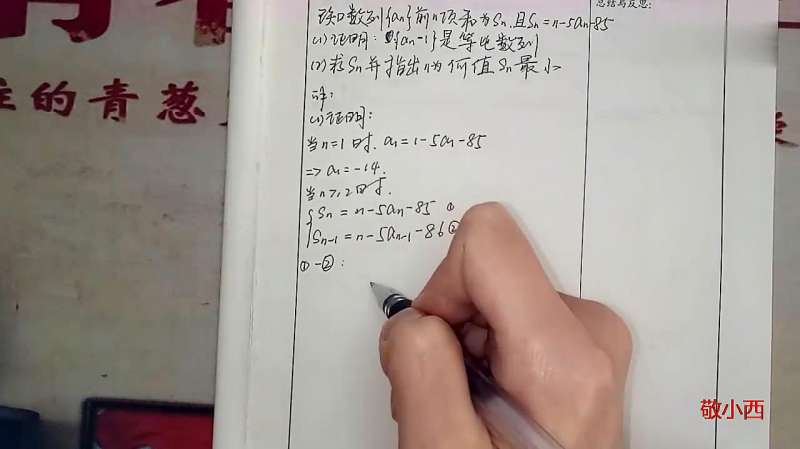 总结与反思:
已知数列{an}前n项和为Sn,且Sn=n-5an-85
(1)证明:{an-1}是等比数列
(2)求Sn并指出n为何值Sn最小
解:
(1)证明:
当n=1时.a1=1-5a1-85
=>a1=-14.
当n≥2时.
{Sn=n-5an-85 ①
Sn-1=n-5an-1-86 ②
①-②:
的青葱
敬小西